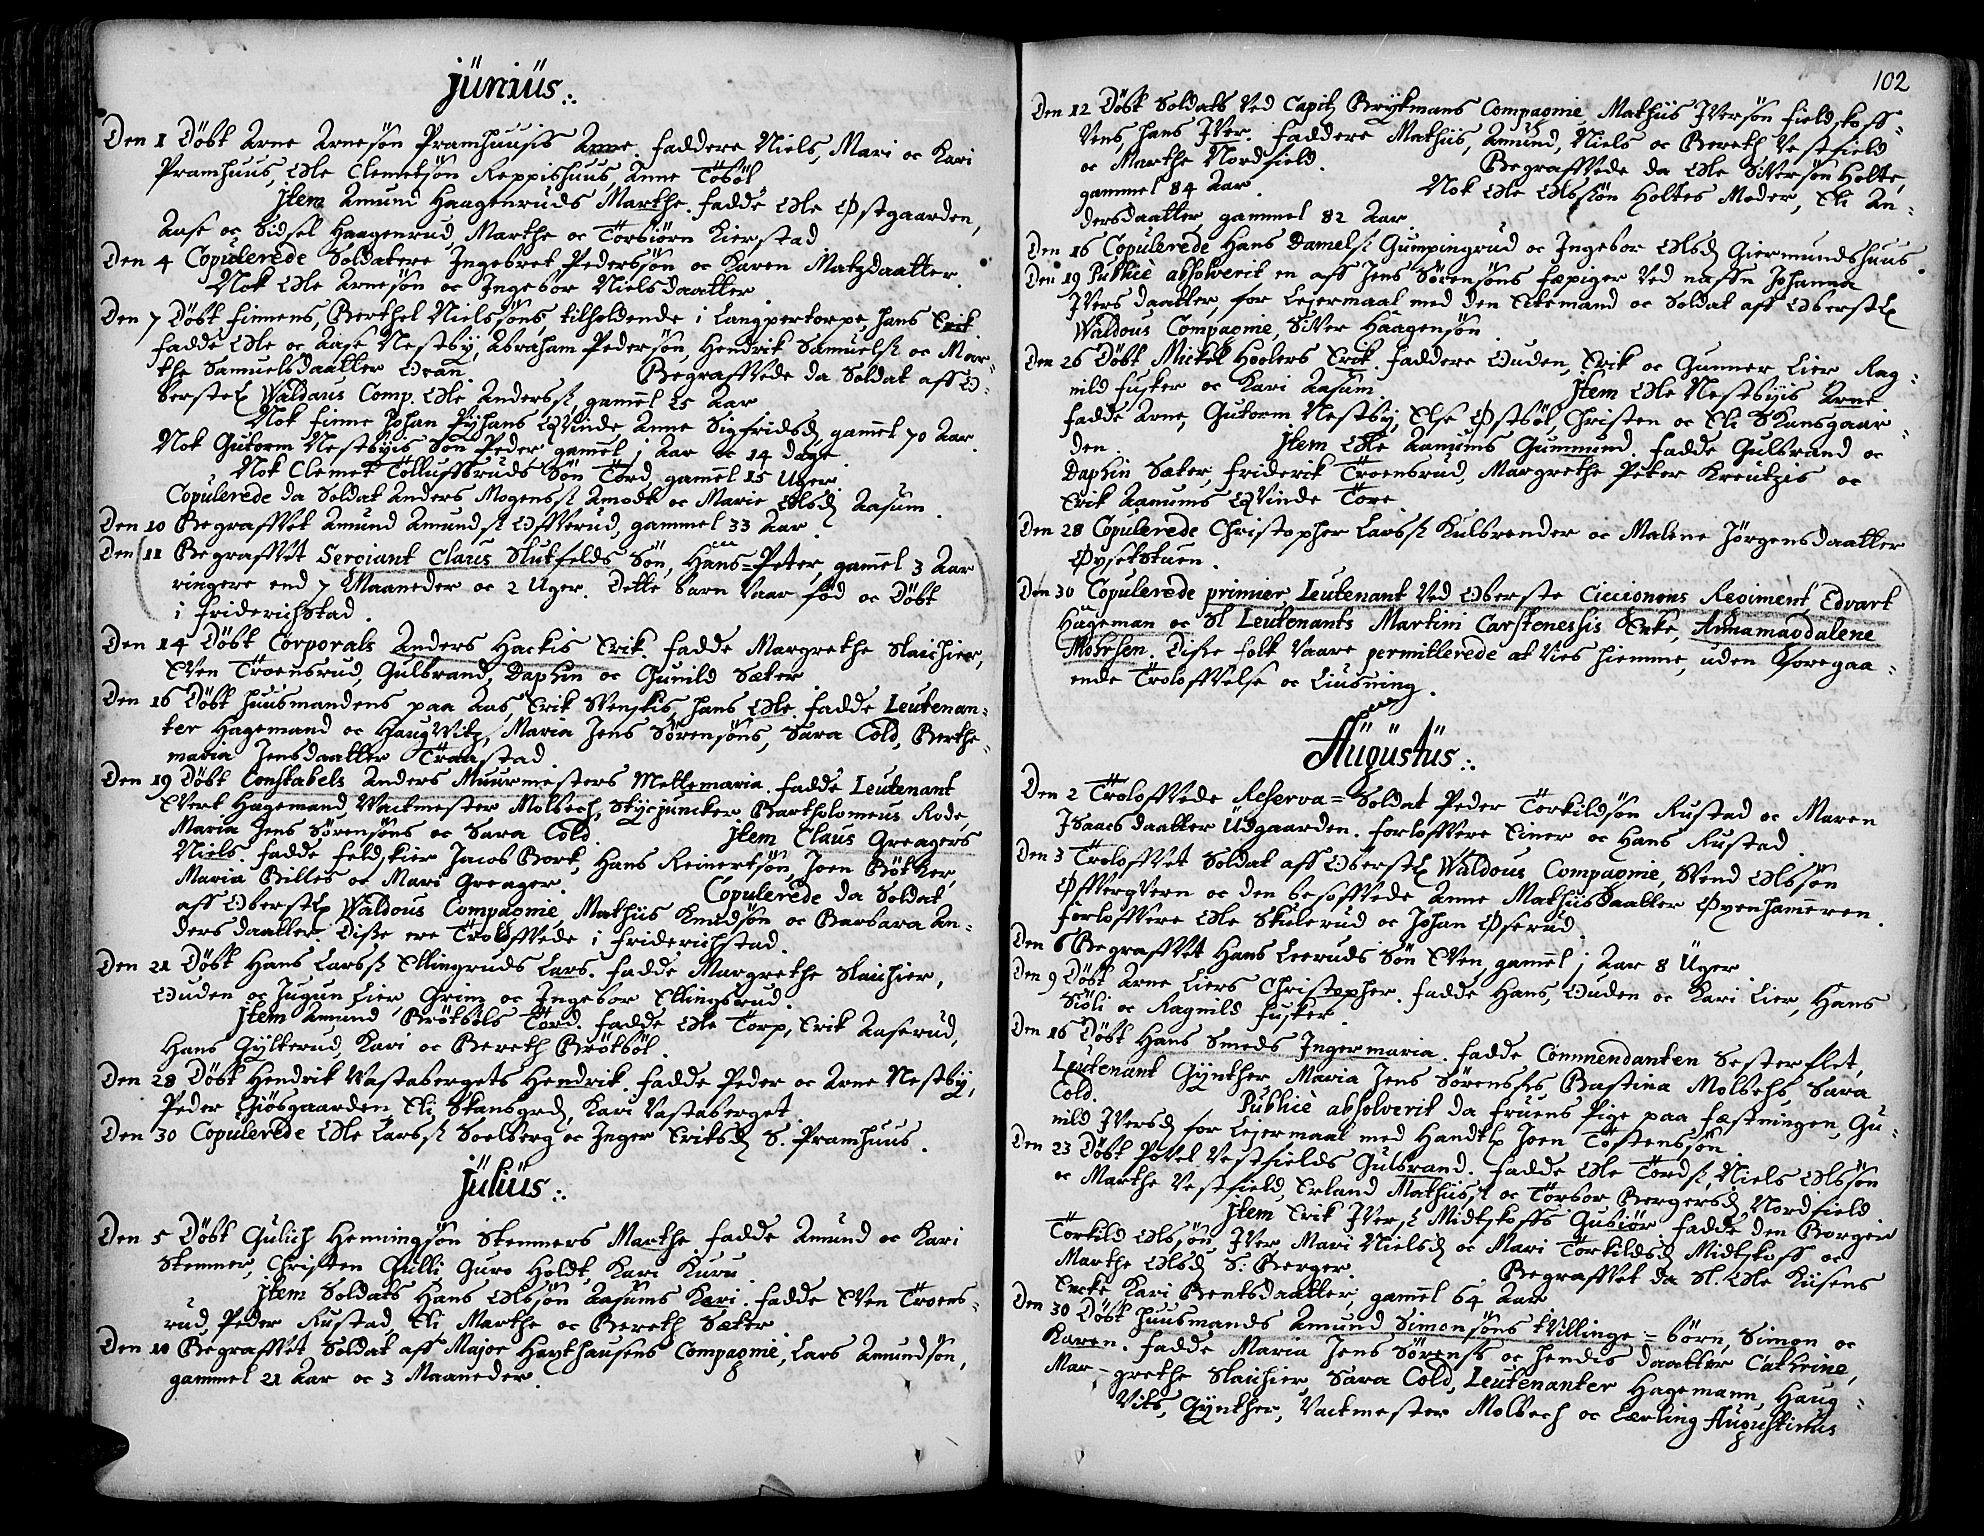 Junius.
Den 1 Döbt Arne Arnesön Pramhuusis Anne. faddere Niels, Mari oc Kari
Pramhuus, Ole Clemetsön Reppishuus, Anne Tösöl
Item Amund Haagenruds Marthe. fadde Ole Østgaarden,
Aase oc Sidsel Haagenrud, Marthe oc Torbiörn Kierstad
Den 4 Copulerede Soldatere Ingebret Pederssön oc Karen Matzdaatter.
Nok Ole Arnesön oc Ingebor Nielsdaatter
Den 7 Döbt finnens, Berthel Nielssöns tilholdende i Langpertorpe, hans Erik
fadde Ole oc Aase Nestby, Abraham Pedersön, Hendrik Samuels: oc Mar-
the Samuelsdaatter Ovan Begraffvede da Soldat aff O-
berstel Waldaus Comp. Ole Anders: gamel 25 Aar
Nok finne Johan Pyhans Qvinde Anne Sigfridsd, gamel 70 Aar.
Nok Gutorm Nestbyis Sön Peder gamel 1 Aar oc 14 dage
Nok Clemet Tolluffsruds Sön Tord, gamel 15 Uger
Copulerede da Soldat Anders Mogens: Amodt oc Marie Olsd Aasum.
Den 10 Begraffvet Amund Amunds: Offverud, gammel 33 Aar.
Den 11 Begraffvet Sergiant Claus Slutfelds Sön, Hans=Peter, gamel 3 Aar
ringere end 7 Maaneder oc 2 Uger. Dette barn vaar föd oc Döbt
i friderichstad.
Den 14 Döbt Corporals Anders Hackis Erik. fadde Margrethe Slaichier,
Even Troensrud, Gulbrand, Daphin oc Gunild Sæter
Den 16 Döbt huusmandens paa Aas, Erik Svenskis, hans Ole. fadde Leutenan-
ter Hagemand oc Haugvitz, Maria Jens Sörensöns, Sara Cold, Berthe-
maria Jensdaatter Traastad.
Den 19 Döbt Constabels Anders Muurmesters Mettemaria. fadde Leutenant
Evert Hagemand, Vachmester Molbech, Stycjuncker Bartholomeus Rode,
Maria Jens Sörensöns oc Sara Cold. Item Claus Greagers
Niels. fadde feldskier Jacob Bork, Hans Reinertsön, Joen Bötker,
Maria Billes oc Mari Greager. Copulerede da Soldat
aff Oberstel Waldous Compagnie, Mathiis Knudsön oc Barbara An-
dersdaatter. Disse ere Troloffvede i friderichstad.
Den 21 Döbt Hans Lars: Ellingruds Lars. fadde Margrethe Slaichier,
Ouden oc Jugun Lier, Grim oc Ingebor Ellingsrud.
Item Amund Brötsöls Tord. fadde Ole Torp, Erik Aaserud,
Hans Gylterud, Kari oc Bereth Brötsöl.
Den 28 Döbt Hendrik Vastabergets Hendrik. fadde Peder oc Arne Nestby,
Peder Giösgaarden, Eli Skansgrd, Kari Vastaberget.
Den 30 Copulerede Ole Lars: Soelberg oc Inger Eriksd S. Pramhuus.
Julius.
Den 5 Döbt Gulich Henningsön Stemners Marthe fadde Amund oc Kari
Stemner, Christen Gulli Guro Holdt, Kari Kuru
Item Soldats Hans Olssön Aasums Kari. fadde Even Troens-
rud, Peder Rustad, Eli Marthe oc Bereth Sæter.
Den 10 Begraffvet Soldat aff Major Haxthausens Compagnie, Lars Amundsön,
gammel 21 Aar oc 3 Maaneder.
102
Den 12 Döbt Soldats ved Capit Brykmans Compagnie, Mathiis Iversön fieldskoff-
vens, hans Iver. faddere Mathiis, Amund, Niels oc Bereth Vestfield
oc Marthe Nordfield. Begraffvede da Ole Siversön Holte,
gammel 84 Aar. Nok Ole Olssön Holtes Moder, Eli An-
dersdaatter, gammel 82 Aar
Den 16 Copulerede Hans Damels: Gumpingrud oc Ingebor Olsd Giermundshuus.
Den 19 Publicè absolverit en aff Jens Sörensöns fæpiger ved naffn Johanna
Ivers daatter, for Lejermaal med den Ectemand oc Soldat aff Oberstel
Waldous Compagnie, Siver Haagensön
Den 26 Döbt Mickel Hoelers Erik. faddere Ouden, Erik oc Gunner Lier Rag-
nild fusker oc Kari Aasum. Item Ole Nestbyis Arne
fadde Arne, Gutorm Nestby, Else Østsöl, Christen oc Eli Skansgaar-
den. Item Ole Aamums Gummund. fadde Gulbrand oc
Daphin Sæter, friderck Troensrud, Margrethe Peter Kreutzis oc
Erik Aamums Qvinde Tore.
Den 28 Copulerede Christopher Lars: Kulbrender oc Malene Jörgensdaatter
Øysetstuen.
Den 30 Copulerede primier Leutenant ved Oberste Ciccionons Regiment, Edvart
Hageman oc Sl Leutenants Martini Carstenessis Enke, Annamagdalene
Mohrsen. Disse folk vaare permitterede at vies hiemme, uden foregaa-
ende Troloffvelse oc Liusning.
Augustus.
Den 2 Troloffvede Reserva=Soldat Peder Torkildsön Rustad oc Maren
Isaacsdaatter Udgaarden. forloffvere Einer oc Hans Rustad.
Den 3 Troloffvet Soldat aff Oberstel Waldous Compagnie, Svend Olssön
Øffvergvern oc den besoffvede Anne Mathiisdaatter Øvenhameren.
forloffvere Ole Skulerud oc Johan Øserud.
Den 6 Begraffvet Hans Leeruds Sön Even, gamel 1 Aar 8 Uger
Den 9 Döbt Arne Liers Christopher. fadde Hans, Ouden oc Kari Lier, Hans
Siöli oc Ragnild fusker.
Den 16 Döbt Hans Smeds Ingermaria. fadde Commendanten Sesterflet,
Leutenant Gynther, Maria Jens Sörensöns Bastina Molbechs, Sara
Cold. Publicè absolverit da fruens Pige paa fæstningen, Gu-
nild Iversd for Lejermaal med Handtl Joen Tostenssön.
Den 23 Döbt Povel Vestfields Gulbrand. fadde Ole Tords:, Niels Olssön
oc Marthe Vestfield, Erland Mathiis: oc Torbor Bergersd, Nordfield
Item Erik Ivers: Midtskoffs Gubiör. fadde den Borger
Torkild Olssön, Iver Mari Nielsd oc Mari Torkildsd Midtskoff oc
Marthe Olsd S: Berger. Begraffvet da Sl. Ole Kiisens
Encke Kari Bentsdaatter, gamel 64 Aar
Den 30 Döbt huusmands Amund Simonsöns tvillinge=börn, Simon oc
Karen. fadde Maria Jens Sörens: oc hendis daatter Cathrine,
Mar-grethe Slaichier, Sara Cold, Leutenanter Hagemann, Haug-
vits, Gynther, Vachmester Molbech oc Lærling Augustinus